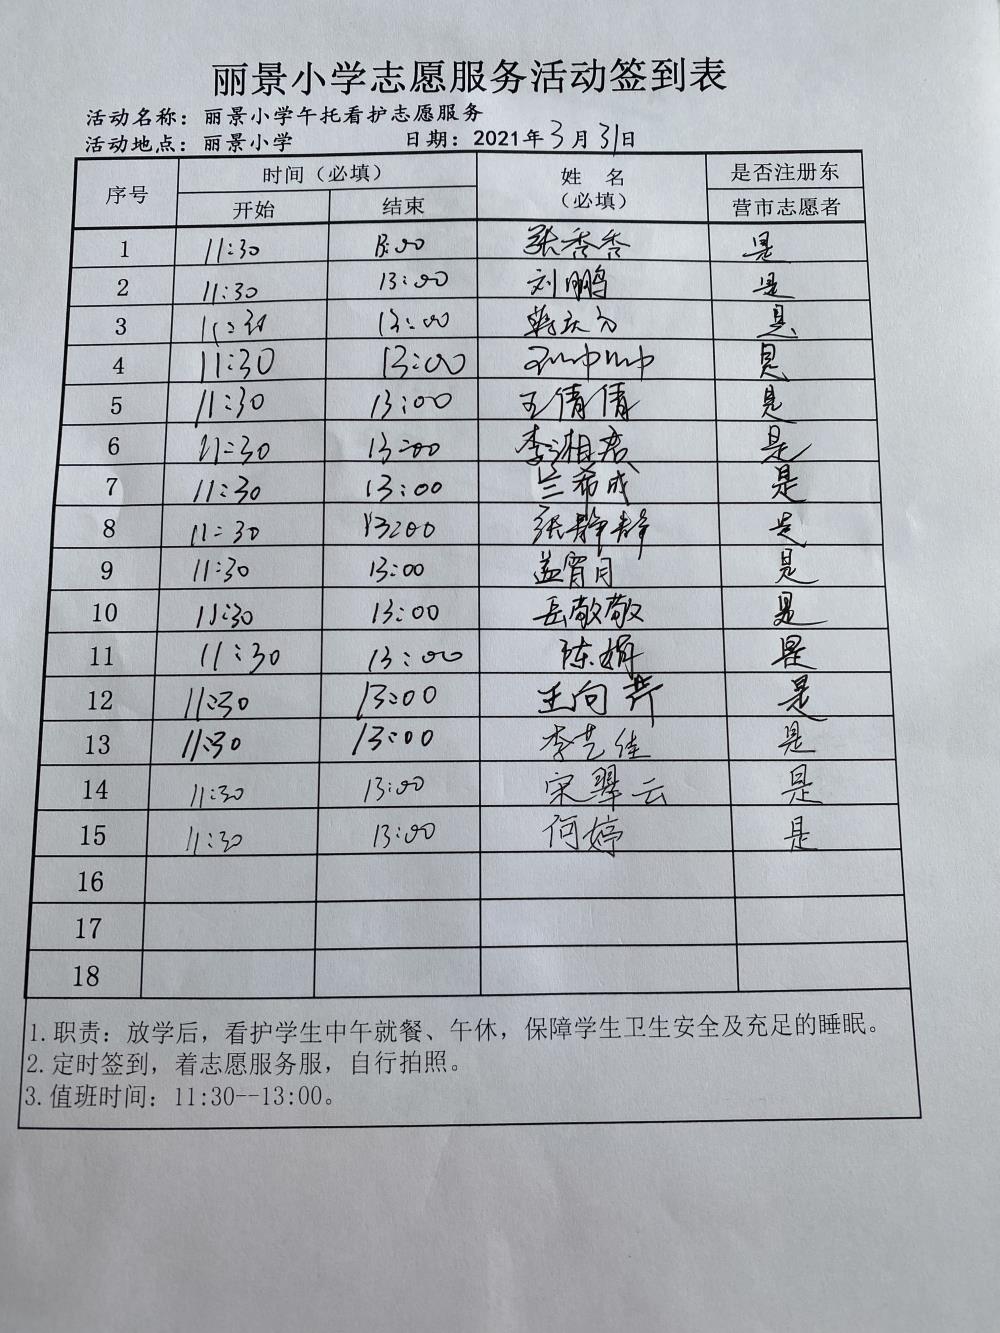 丽景小学志愿服务活动签到表
活动名称：丽景小学午托看护志愿服务
活动地点：丽景小学 日期：2021年3月31日
序号 时间（必填） 姓 名（必填） 是否注册东营市志愿者
开始 结束
1 11:30 13:00 张香香 是
2 11:30 13:00 刘鹏 是
3 11:30 13:00 是
4 11:30 13:00 是
5 11:30 13:00 王倩倩 是
6 11:30 13:00 李湘君 是
7 11:30 13:00 兰希成 是
8 11:30 13:00 张静静 是
9 11:30 13:00 盖宵月 是
10 11:30 13:00 岳敬敬 是
11 11:30 13:00 陈娟 是
12 11:30 13:00 王向芹 是
13 11:30 13:00 李艺佳 是
14 11:30 13:00 宋翠云 是
15 11:30 13:00 何婷 是
16
17
18
1.职责：放学后，看护学生中午就餐、午休，保障学生卫生安全及充足的睡眠。
2.定时签到，着志愿服务服，自行拍照。
3.值班时间：11:30--13:00。